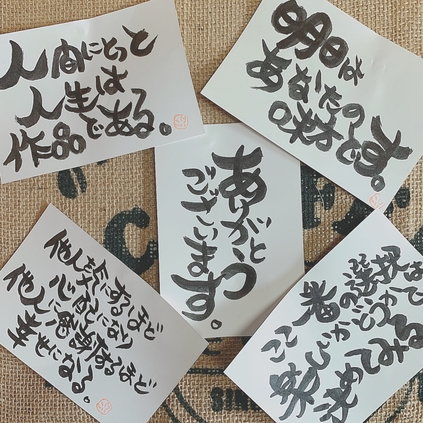 人間にとって
人生は
作品である。
明日は
あなたの
味方です。
ありがとう
ございます。
他人を気にするほど
心配になり
他人に感謝するほど
幸せになる。
番の選択は
かどうかで
決めてみる